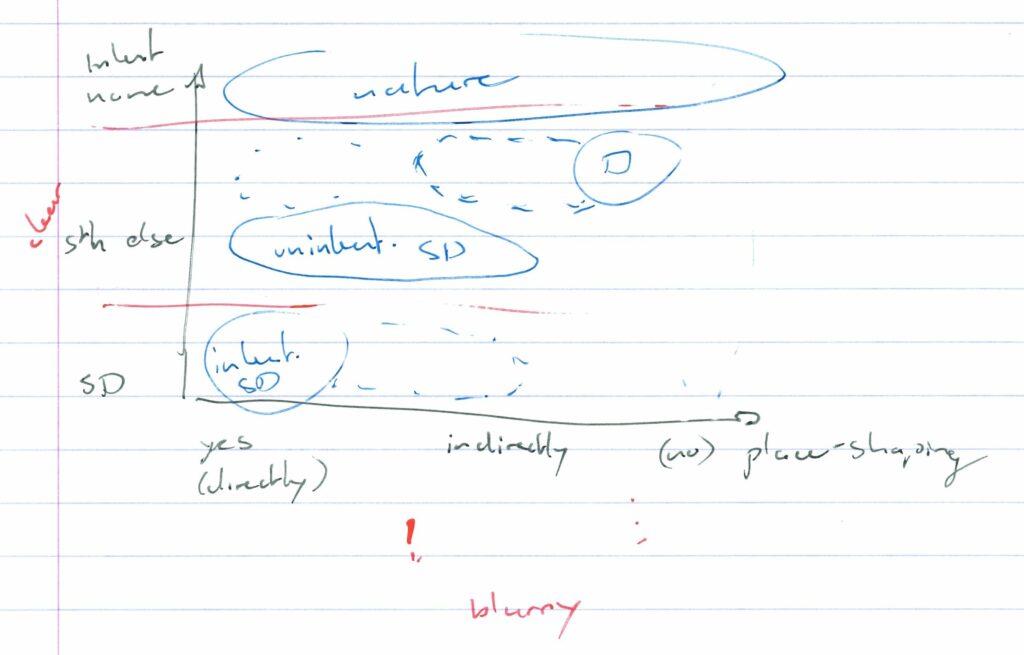 Intent
none
nature
D
clear
sth else
unintent. SD
intent.
SD
SD
yes
(directly)
indirectly
(no)
place-shaping
!
blurry